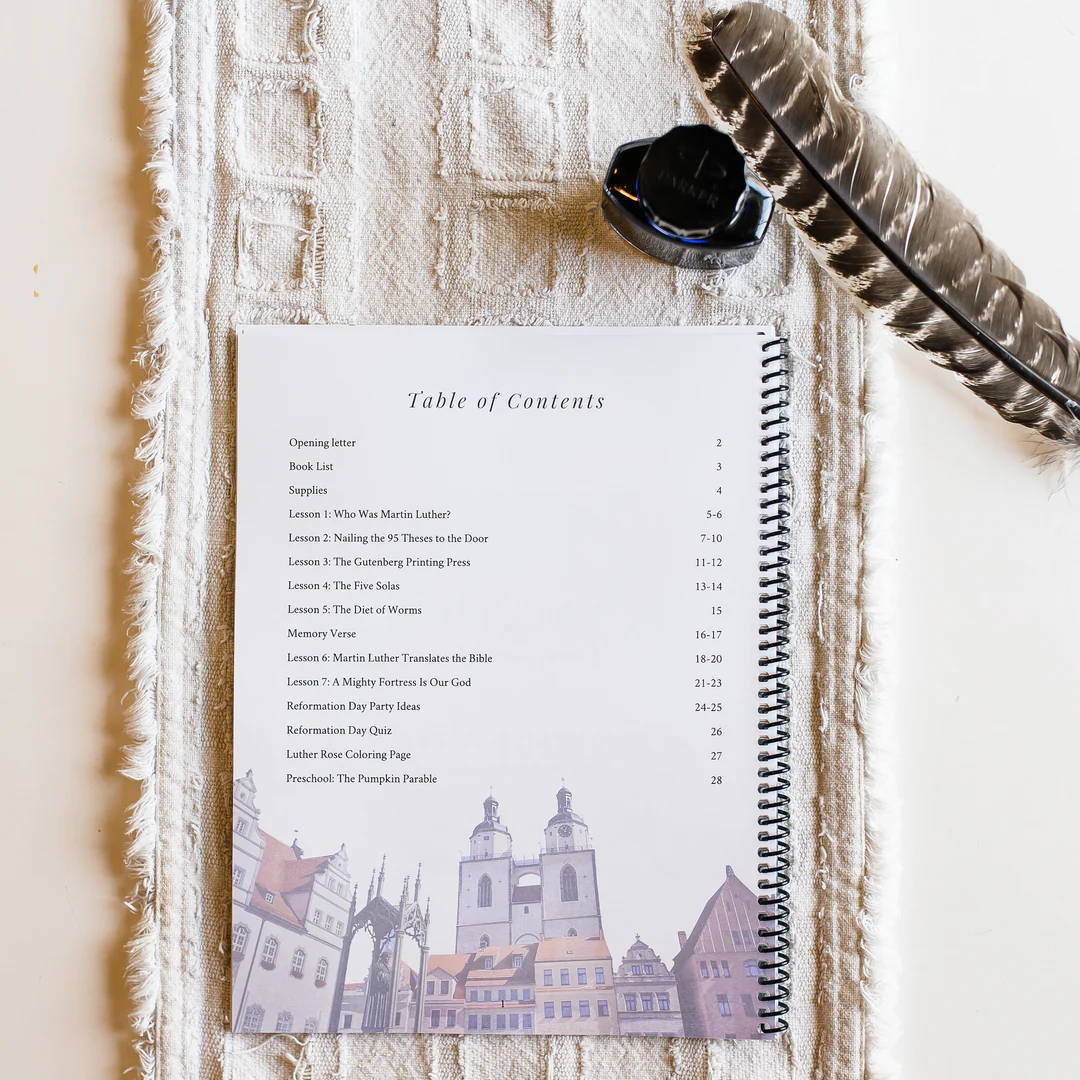 PARKER
Table of Contents
Opening letter 2
Book List 3
Supplies 4
Lesson 1: Who Was Martin Luther? 5-6
Lesson 2: Nailing the 95 Theses to the Door 7-10
Lesson 3: The Gutenberg Printing Press 11-12
Lesson 4: The Five Solas 13-14
Lesson 5: The Diet of Worms 15
Memory Verse 16-17
Lesson 6: Martin Luther Translates the Bible 18-20
Lesson 7: A Mighty Fortress Is Our God 21-23
Reformation Day Party Ideas 24-25
Reformation Day Quiz 26
Luther Rose Coloring Page 27
Preschool: The Pumpkin Parable 28
1